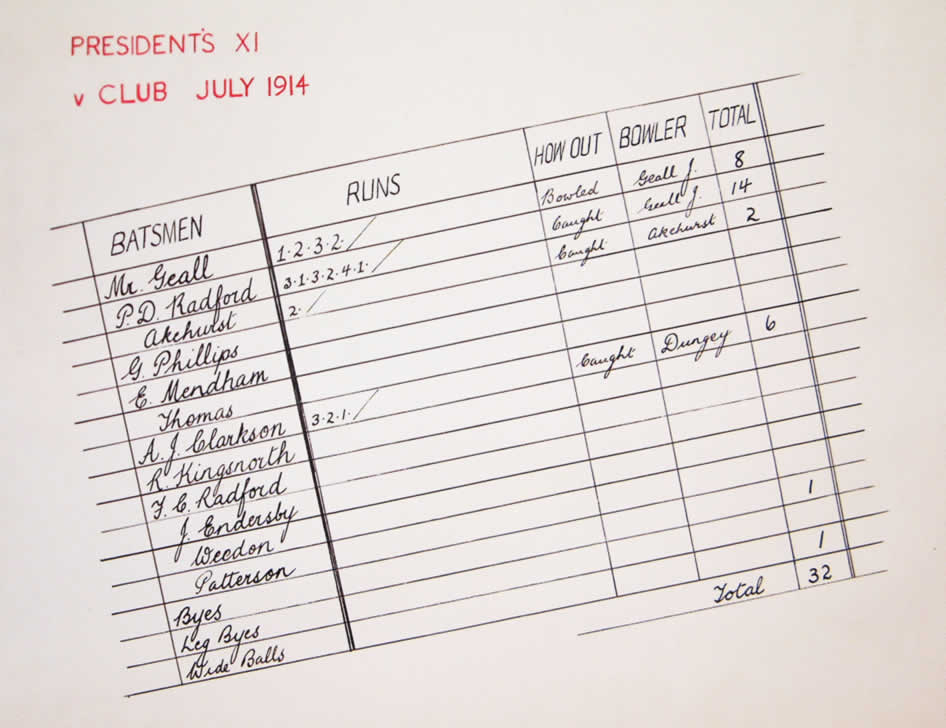 PRESIDENT'S XI
v CLUB JULY 1914
BATSMEN RUNS HOW OUT BOWLER TOTAL
Mr. Geall 1·2·3·2·/ Bowled Geall J. 8
P.D. Radford 3·1·3·2·4·1·/ Caught Geall J. 14
Akehurst 2·/ Caught Akehurst 2
G. Phillips
E. Mendham
Thomas
A. J. Clarkson 3·2·1·/ Caught Dungey 6
R. Kingsnorth
F. C. Radford
J. Endersby
Weedon
Patterson
Byes 1
Leg Byes
Wide Balls 1
Total 32